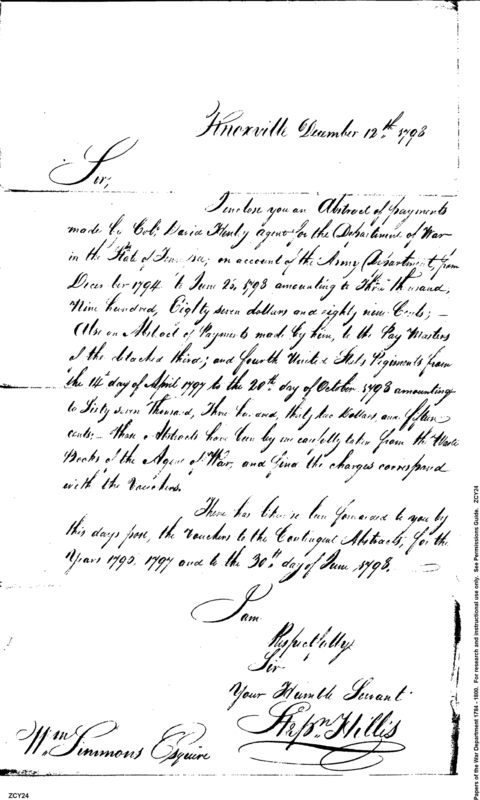 Knoxville December 12th. 1798
Sir,
I enclose you an Abstract of payments
made by Colo. David Henly Agent for the Department of War
in the State of Tennessee; on account of the Army Department, from
December 1794 to June 23, 1798 amounting to Three thousand,
Nine hundred, Eighty seven dollars and eighty nine Cents; —
Also an Abstract of Payments made by him, to the Pay Masters
of the detached third; and fourth United States Regiments from
the 14th day of April 1797 to the 20th. day of October 1798 amounting
to Sixty seven Thousand, Three hundred, thirty two Dollars, and fifteen
cents. — These Abstracts have been by me carefully taken from the Waste
Books of the Agent of War, and find the charges correspond
with the Vouchers.
There has likewise been forwarded to you by
this days post, the Vouchers to the Contingent Abstracts, for the
Years 1797 and to the 30th. day of June, 1798.
I am
Respectfully
Sir
Your Humble Servant
Stepn. Hillis
Wm. Simmons Esquire
ZCY24
Papers of the War Department 1784 - 1800. For research and instructional use only. See Permissions Guide. ZCY24